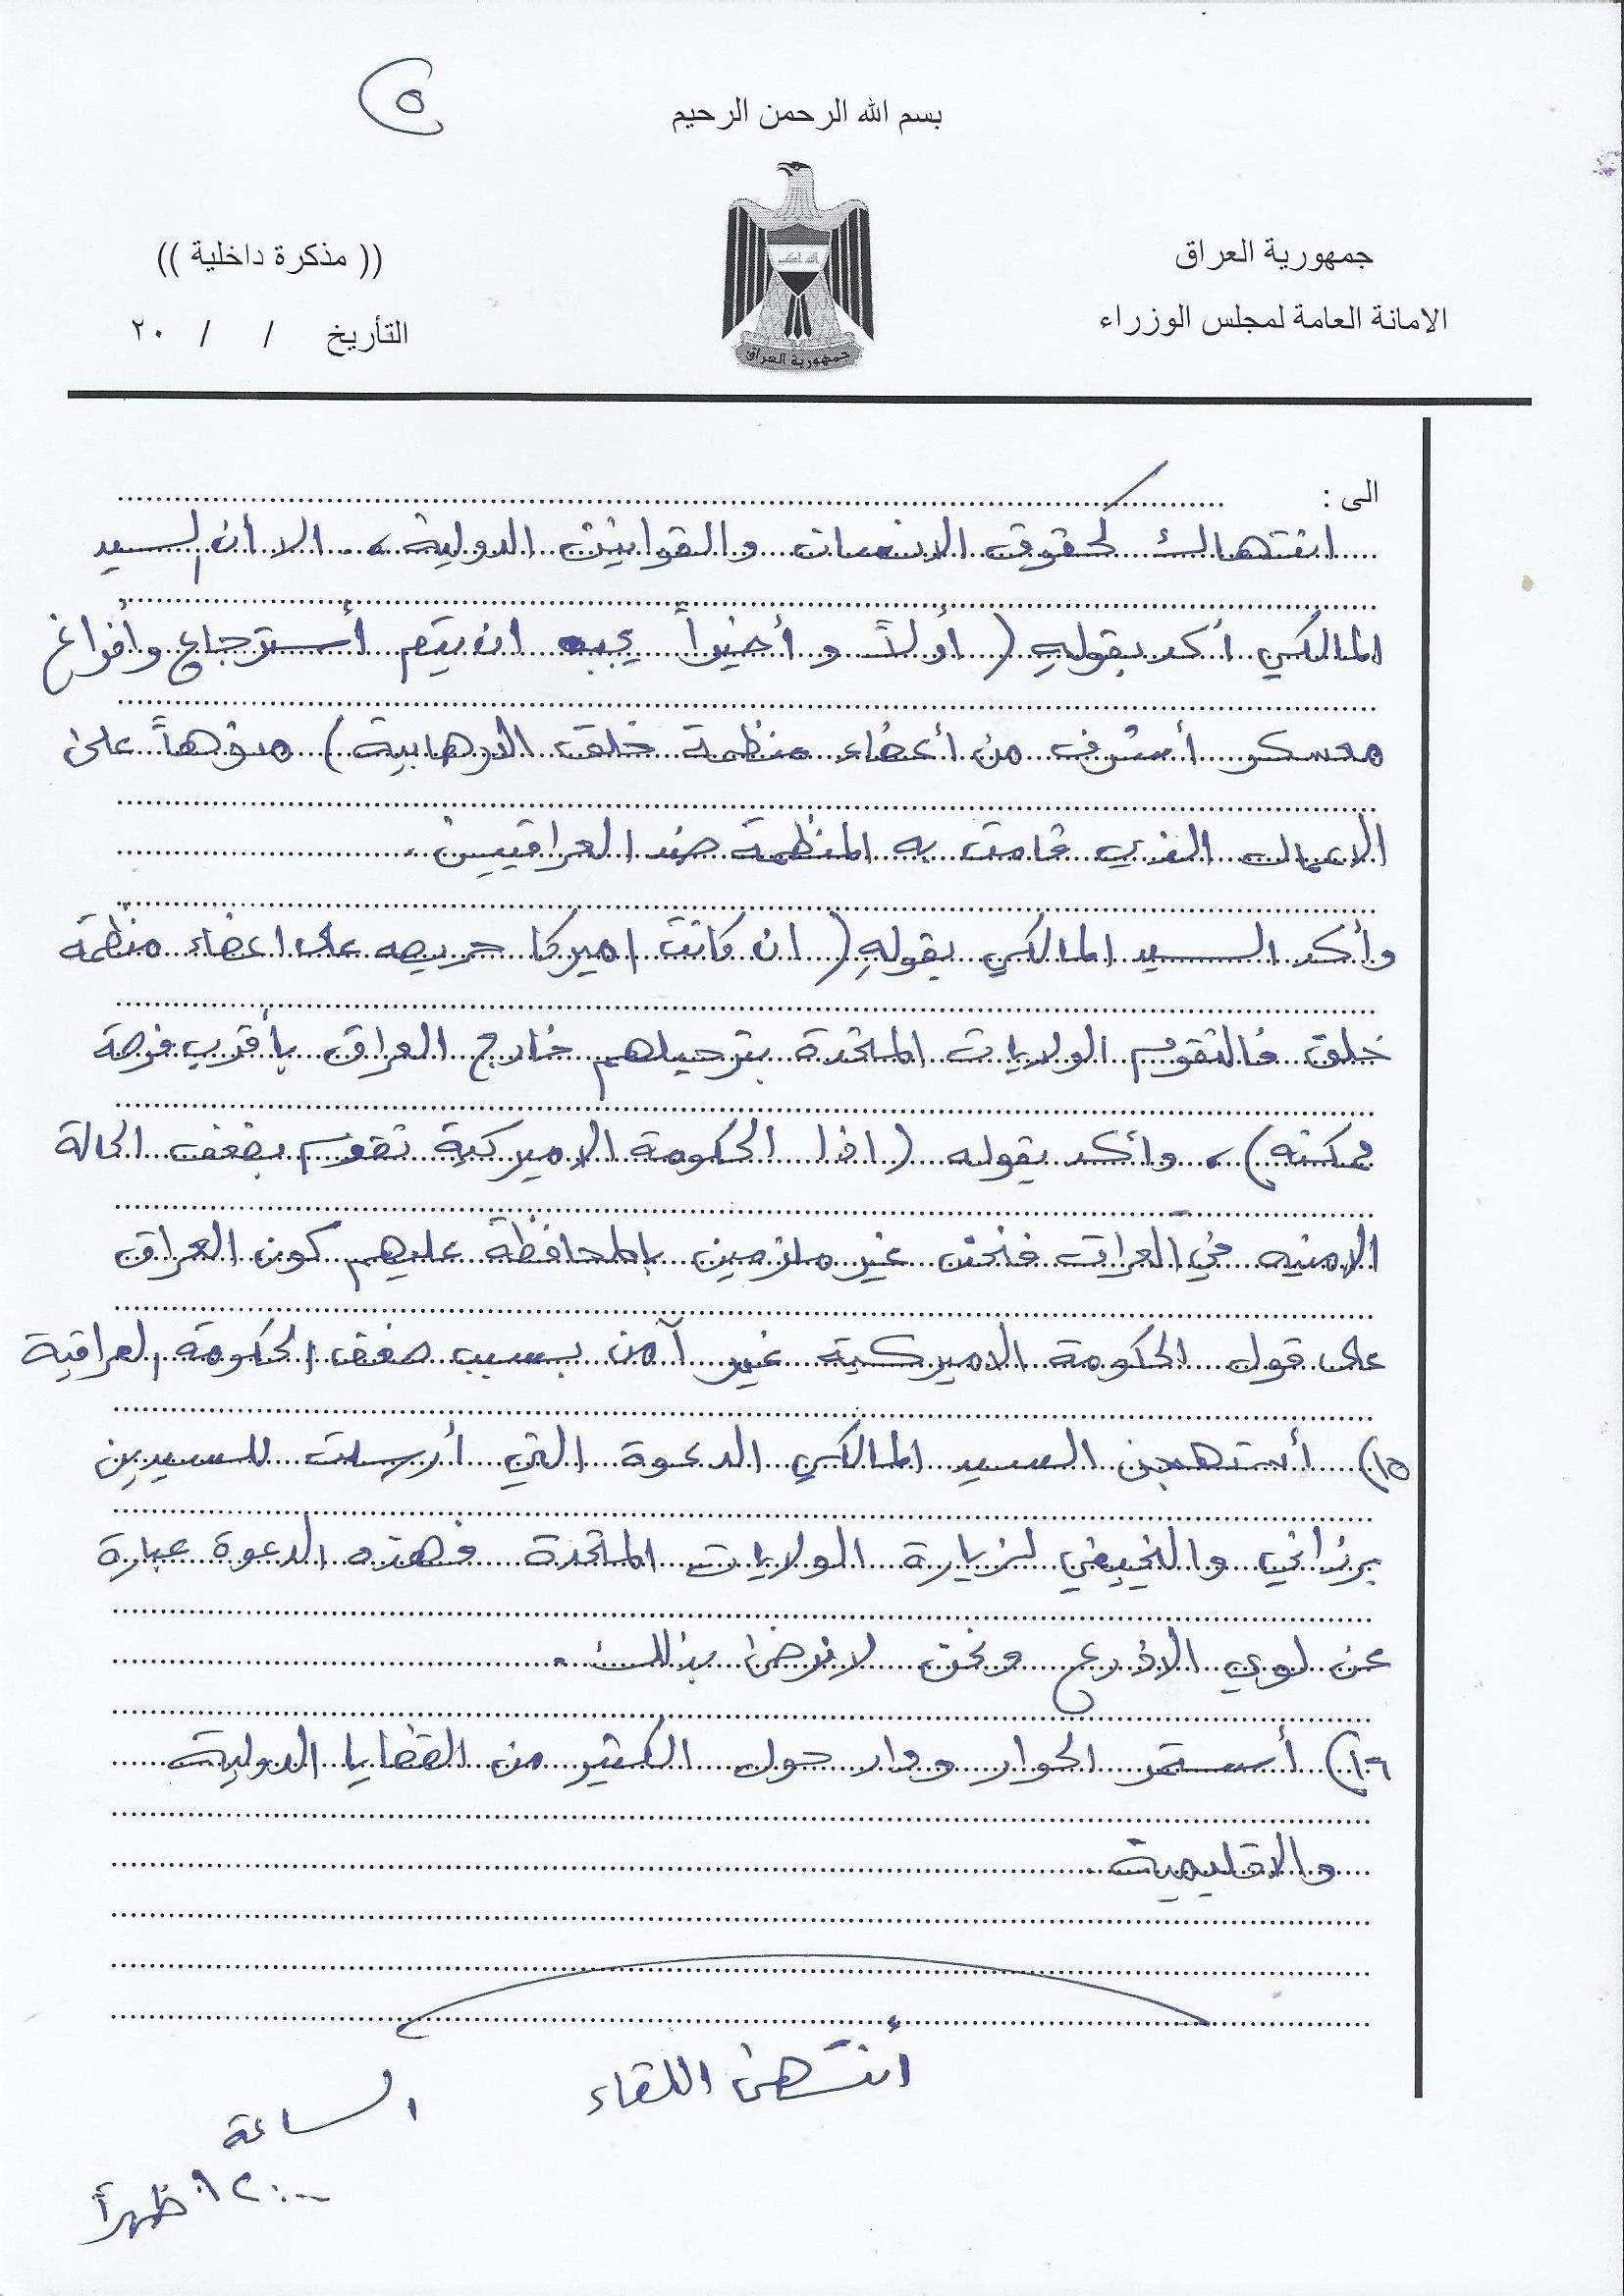 ٥
بسم الله الرحمن الرحيم
جمهورية العراق
الامانة العامة لمجلس الوزراء
(( مذكرة داخلية ))
التأريخ / / ٢٠
جمهورية العراق
الى :
انتهاك لحقوق الانسان والقوانين الدولية، الا أن السيد
المالكي أكد بقولهِ ( أولاً و أخيراً يجب ان يتم أسترجاع وأفراغ
معسكر أشرف من أعضاء منظمة خلق الارهابية) منوهاً على
الاعمال الذي قامت به المنظمة ضد العراقيين.
وأكد السيد المالكي بقولهِ ( ان كانت اميركا حريصه على اعضاء منظمة
خلق فالتقوم الولايات المتحدة بترحيلهم خارج العراق بأقرب فرصة
ممكنه)، وأكد بقوله (اذا الحكومة الاميركية تقوم بضعف الحالة
الامنيه في العراق فنحن غير ملزمين بالمحافظة عليهم كون العراق
على قول الحكومة الاميركية غير آمن بسبب ضعف الحكومة العراقية
١٥) أستهجن السيد المالكي الدعوة التي أرسلت للسيدين
برزاني والنجيفي لزيارة الولايات المتحدة فهذه الدعوة عبارة
عن لوي الاذرع ونحن لا نرضى بذلك.
١٦) أستمر الحوار ودار حول الكثير من القضايا الدولية
والاقليمية.
أنتهى اللقاء
الساعة
١٢:٠٠ ظهراً